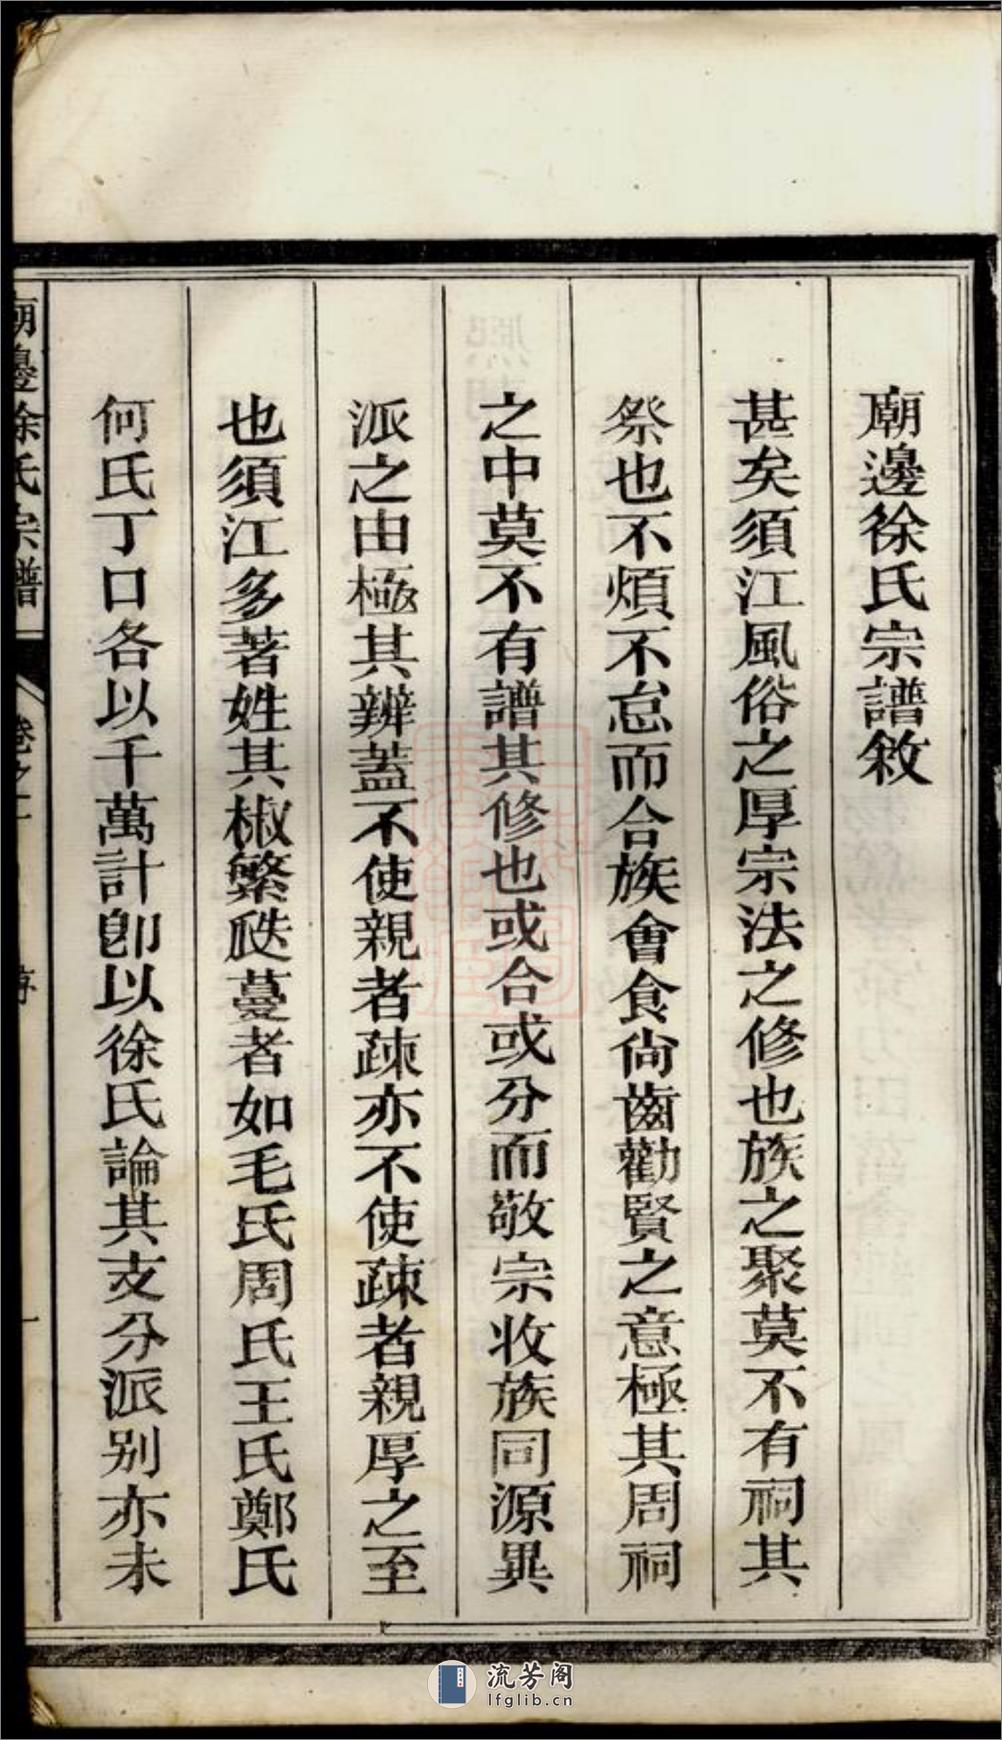 廟邊徐氏宗譜敘
甚矣須江風俗之厚宗法之修也族之聚莫不有祠其
祭也不煩不怠而合族會食尙齒勸賢之意極其周祠
之中莫不有譜其修也或合或分而敬宗收族同源異
派之由極其辨蓋不使親者疎亦不使疎者親厚之至
也須江多著姓其椒繁瓞蔓者如毛氏周氏王氏鄭氏
何氏丁口各以千萬計卽以徐氏論其支分派别亦未
廟邊徐氏宗譜
卷之
序
一
流芳阁
lfglib.cn